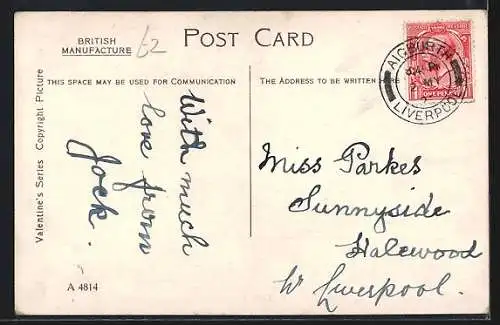 BRITISH
MANUFACTURE
62
POST CARD
THIS SPACE MAY BE USED FOR COMMUNICATION
THE ADDRESS TO BE WRITTEN HERE
Valentine's Series Copyright Picture
With much
love from
Jock.
A 4814
Miss Parkes
Sunnyside
Halewood
Nr Liverpool.
AIGBURTH
LIVERPOOL
ONE PENNY